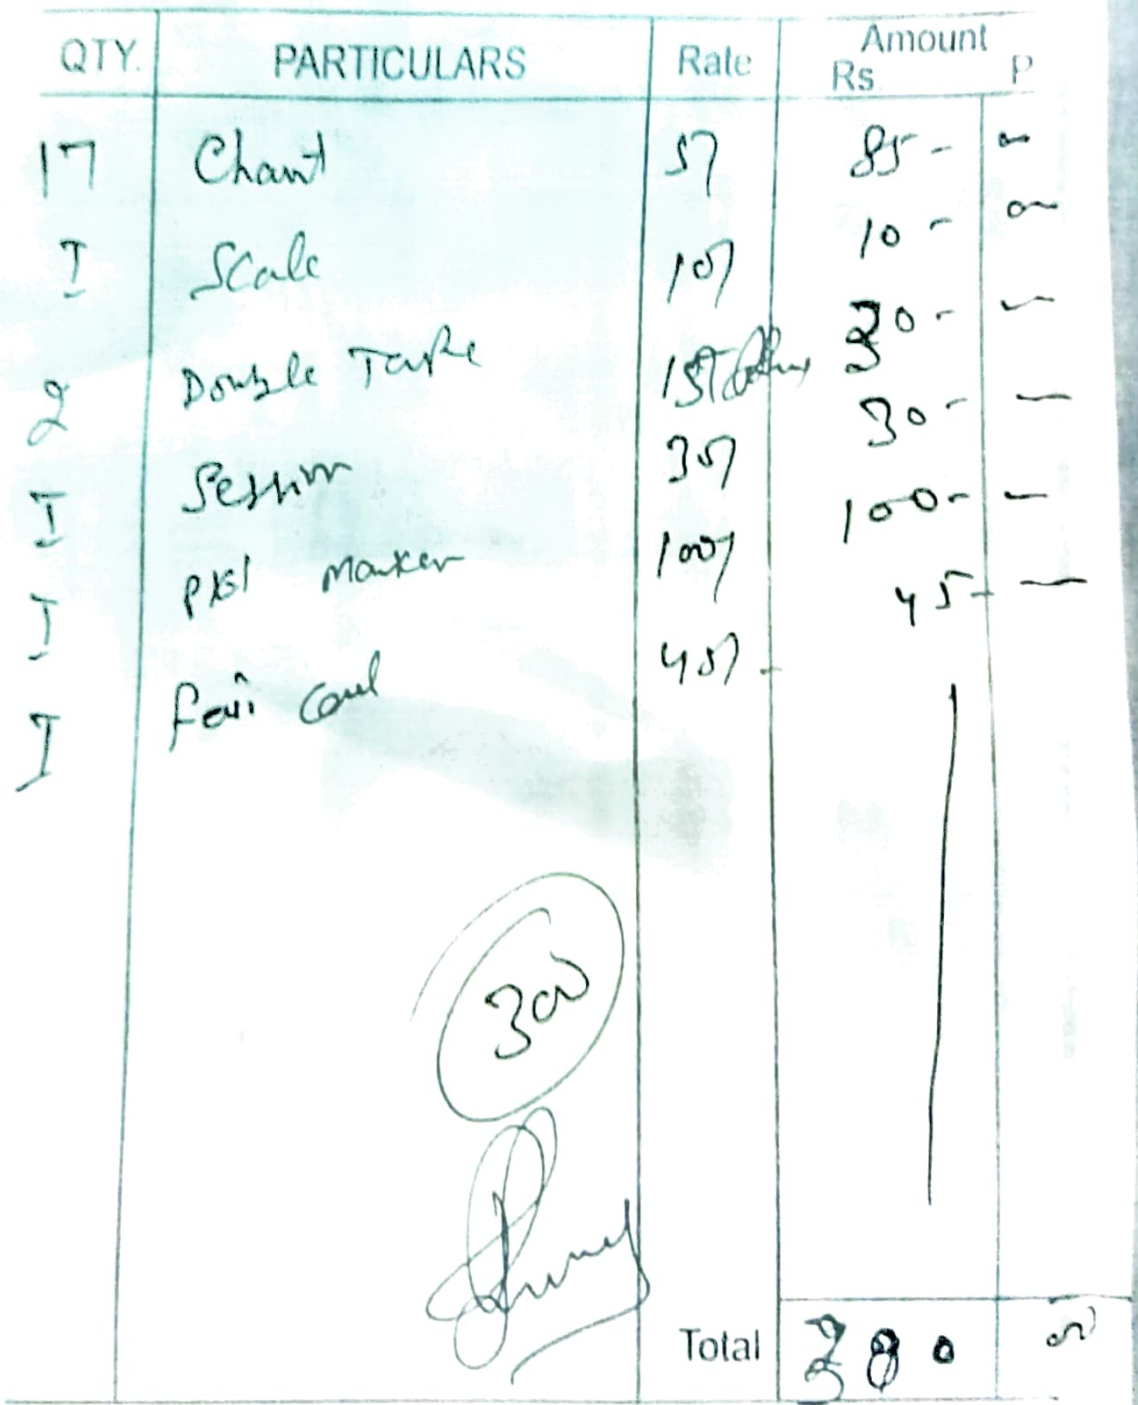 QTY. PARTICULARS Rate Amount
Rs P
17 Chart 5/ 85 -
1 Scale 10/ 10 -
2 Double Tape 15/ 30 -
1 30/ 30 -
1 Marker 100/ 100 -
1 45/ - 45 -
300
Total